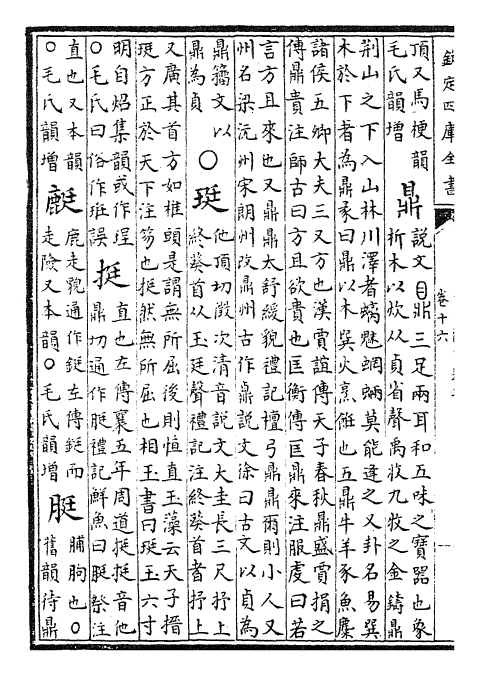 欽定四庫全書
卷十六
頂又馬梗韻
毛氏韻增
鼎
說文鼎三足兩耳和五味之寶器也象
析木以炊从貞省聲禹收九牧之金鑄鼎
荆山之下入山林川澤者螭魅蝄蜽莫能逢之又卦名易巽
木於下者為鼎象曰鼎以木巽火烹餁也五鼎牛羊豕魚麋
諸侯五卿大夫三又方也漢賈誼傳天子春秋鼎盛賈捐之
傳鼎貴注師古曰方且欲貴也匡衡傳匡鼎來注服虔曰若
言方且來也又鼎鼎大舒緩貌禮記檀弓鼎鼎爾則小人又
州名梁沅州宋朗州改鼎州古作鼑說文徐曰古文以貞為
鼎籀文以
鼎為貞
○珽
他頂切徵次清音說文大圭長三尺抒上
終葵首从玉廷聲禮記注終葵首者抒上
又廣其首方如椎頭是謂無所屈後則恒直玉藻云天子搢
珽方正於天下注笏也挺然無所屈也相玉書曰珽玉六寸
明自炤集韻或作珵
○毛氏曰俗作班誤
挺
直也左傳襄五年周道挺挺音他
鼎切通作脡禮記鮮魚曰脡祭注
直也又本韻
○毛氏韻增
䴺
鹿走貌通作鋌左傳鋌而
走險又本韻○毛氏韻增
脡
脯朐也○
舊韻待鼎